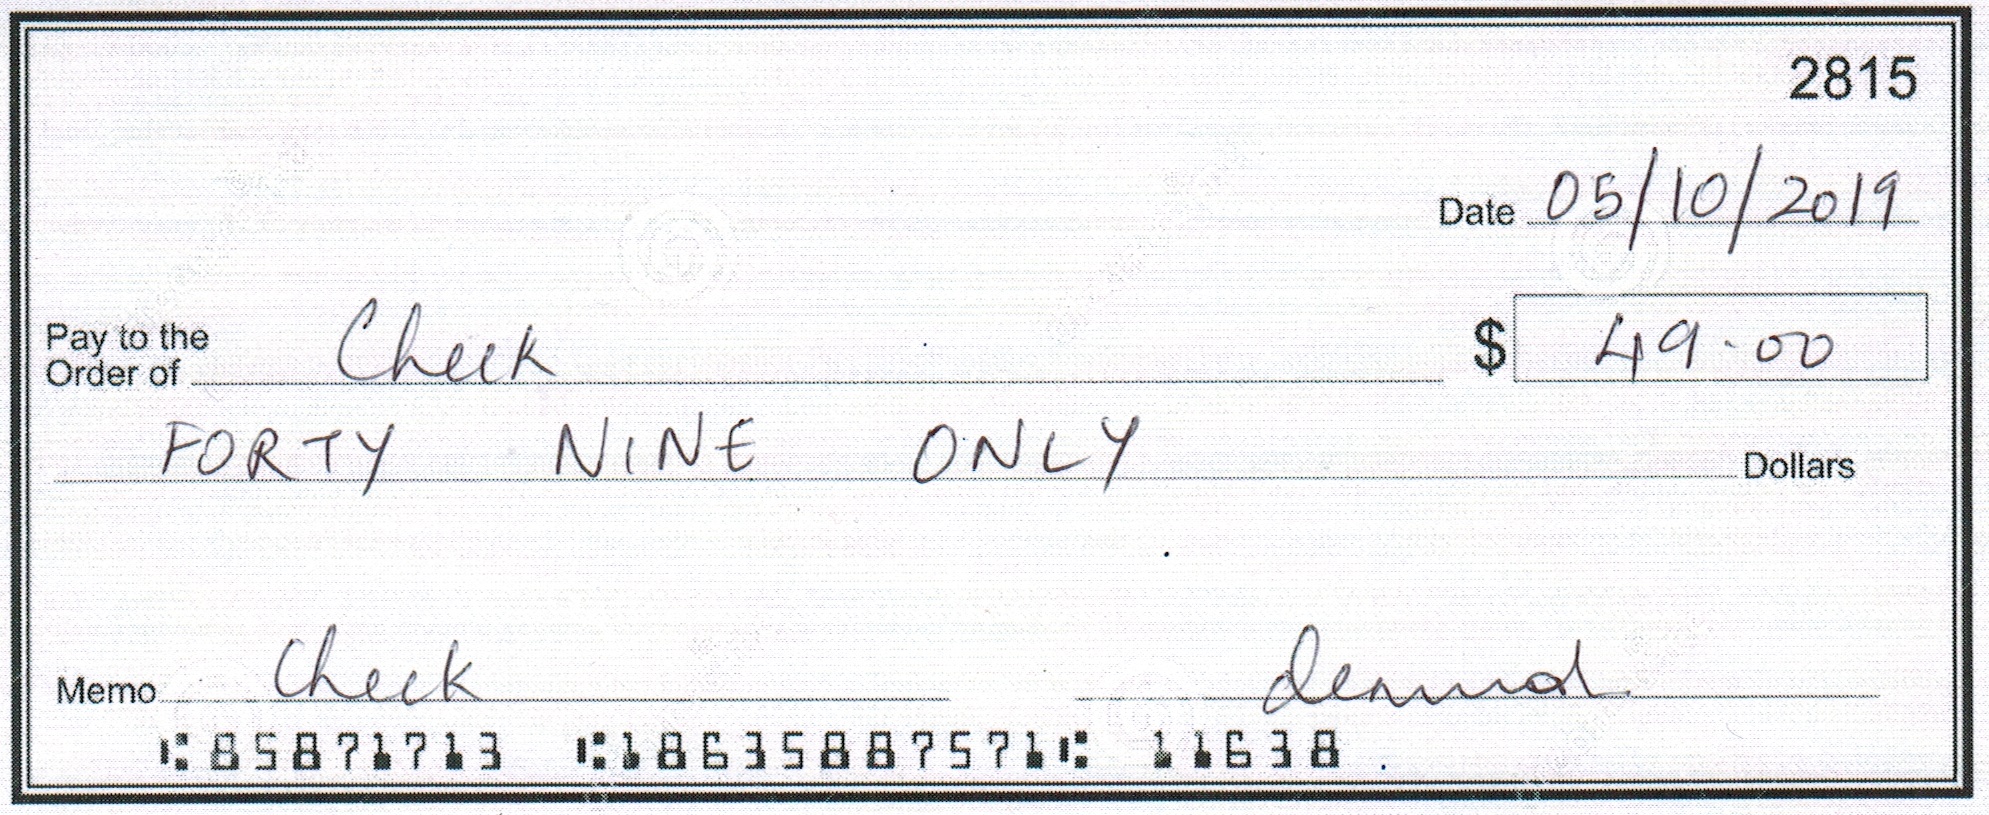 2815
Date 05/10/2019
Pay to the
Order of Check $ 49.00
FORTY NINE ONLY Dollars
Memo Check
⑆85871713 ⑆18635887571⑆ 11638